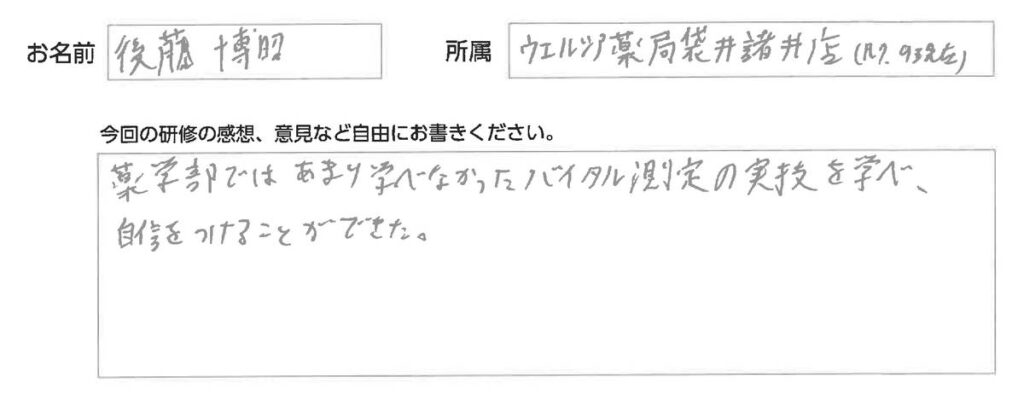 お名前 後藤 博昭 所属 ウエルシア薬局袋井諸井店
今回の研修の感想、意見など自由にお書きください。
薬学部では あまり学べなかったバイタル測定の実技を学べ、
自信をつけることができた。